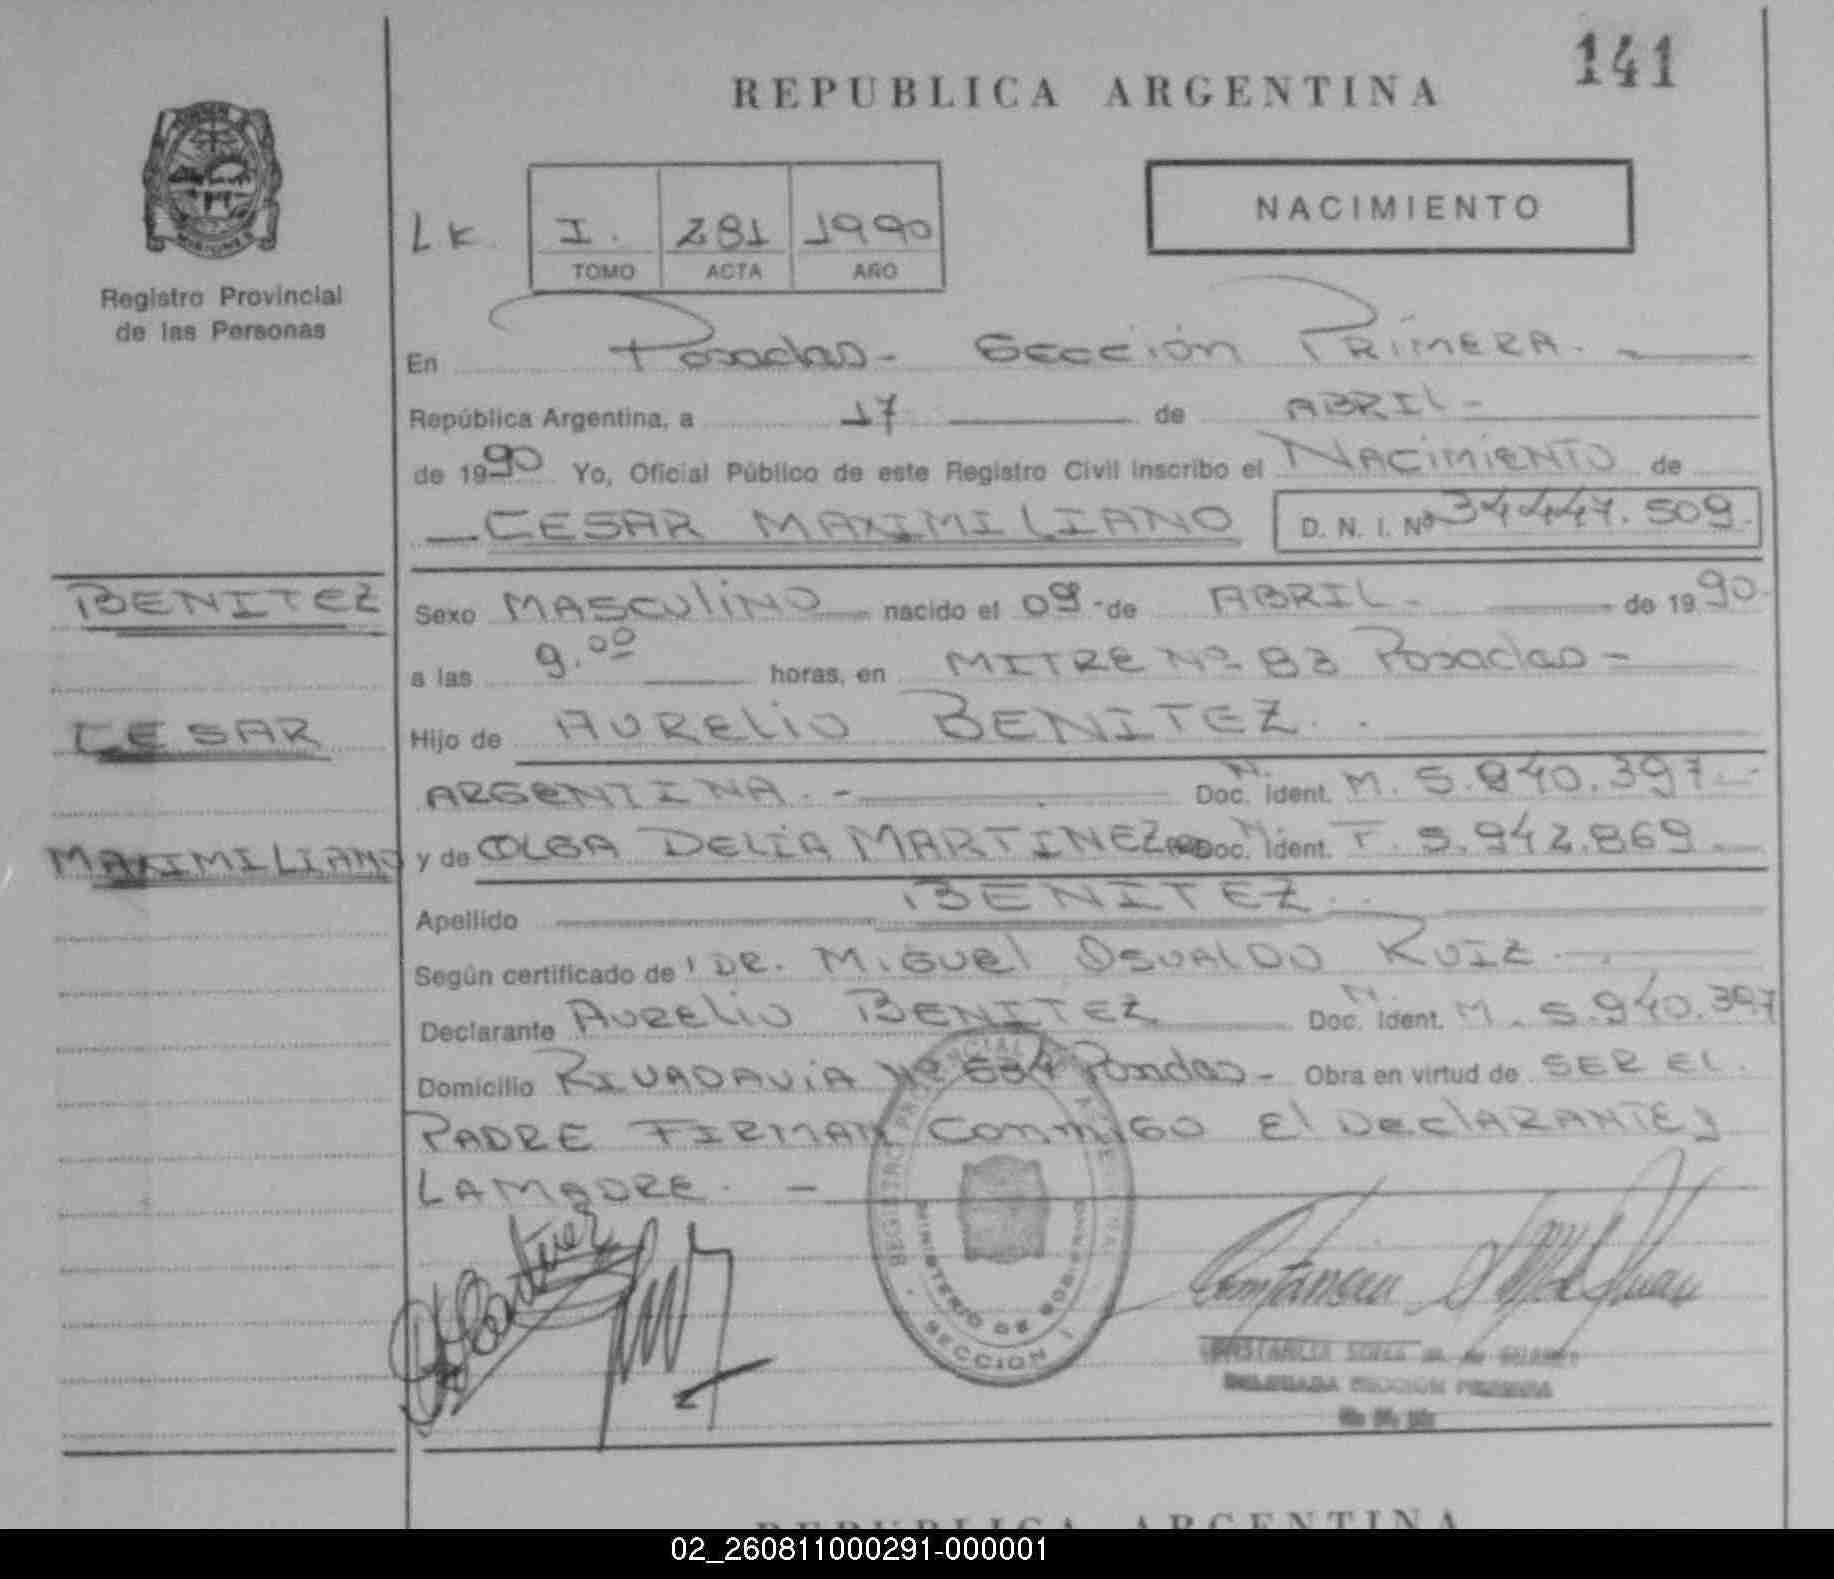 141
REPUBLICA ARGENTINA
NACIMIENTO
LK I. 281 1990
TOMO ACTA AÑO
Registro Provincial
de las Personas
En Posadas - Sección PRIMERA.
República Argentina, a 17 de ABRIL -
de 1990 Yo, Oficial Público de este Registro Civil Inscribo el NACIMIENTO de
CESAR MAXIMILIANO D. N. I. Nº 34447.509.
BENITEZ
CESAR
MAXIMILIANO
Sexo MASCULINO nacido el 09 - de ABRIL - de 1990
a las 9.00 horas, en MITRE Nº 83 Posadas -
Hijo de AURELIO BENITEZ.
ARGENTINA. - Doc. N. Ident. M. 5.940.397 -
y de OLGA DELIA MARTINEZ Doc. N. Ident. F. 5.942.869.
Apellido BENITEZ.
Según certificado de DR. MIGUEL OSVALDO RUIZ.
Declarante AURELIO BENITEZ Doc. N. Ident. M. 5.940.397
Domicilio RIVADAVIA Nº Posadas - Obra en virtud de SER EL
PADRE FIRMAN CONMIGO El DEClARANTE y
LA MADRE. -
REGISTRO PROVINCIAL DE LAS PERSONAS
MINISTERIO DE GOBIERNO
SECCION 1
DELEGADA SECCION PRIMERA
REPUBLICA ARGENTINA
02_260811000291-000001